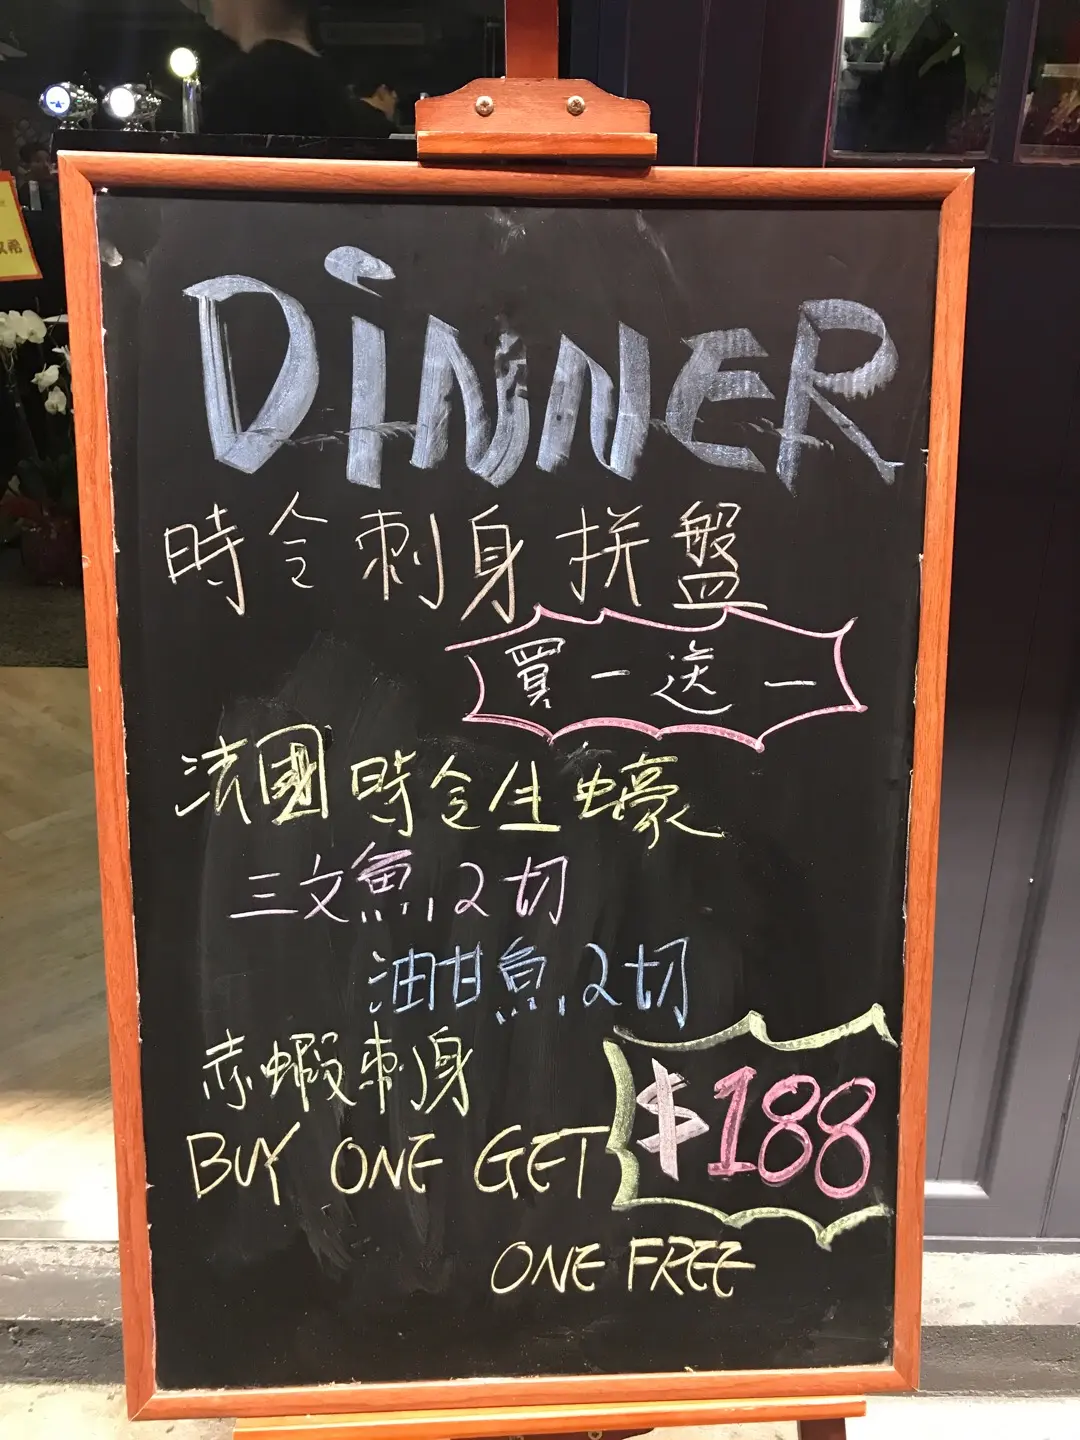 DINNER
時令刺身拼盤
買一送一
法國時令生蠔
三文魚,2切
油甘魚,2切
赤蝦刺身
$188
BUY ONE GET
ONE FREE